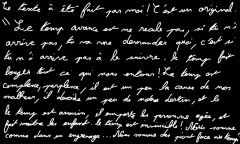 Ce texte à été fait par moi! C'est un original.
"Le temp avance est ne recule pas, si tu n'
arrive pas, tu va me demander quoi, c'est si
tu n'arrive pas à le suivre. le temp fait
bouger tout ce qui nous entoure! Le temp est
complexe, perplexe, il est un peu la cause de nos
malheur, il décide un peu de notre destin, et le
le temp est annuin, il emporte les personne agées, et
fait naitre de enfant. le temp est invincible! Nous somme
comme dans un engrenage... Nous somme des pont face au temp"